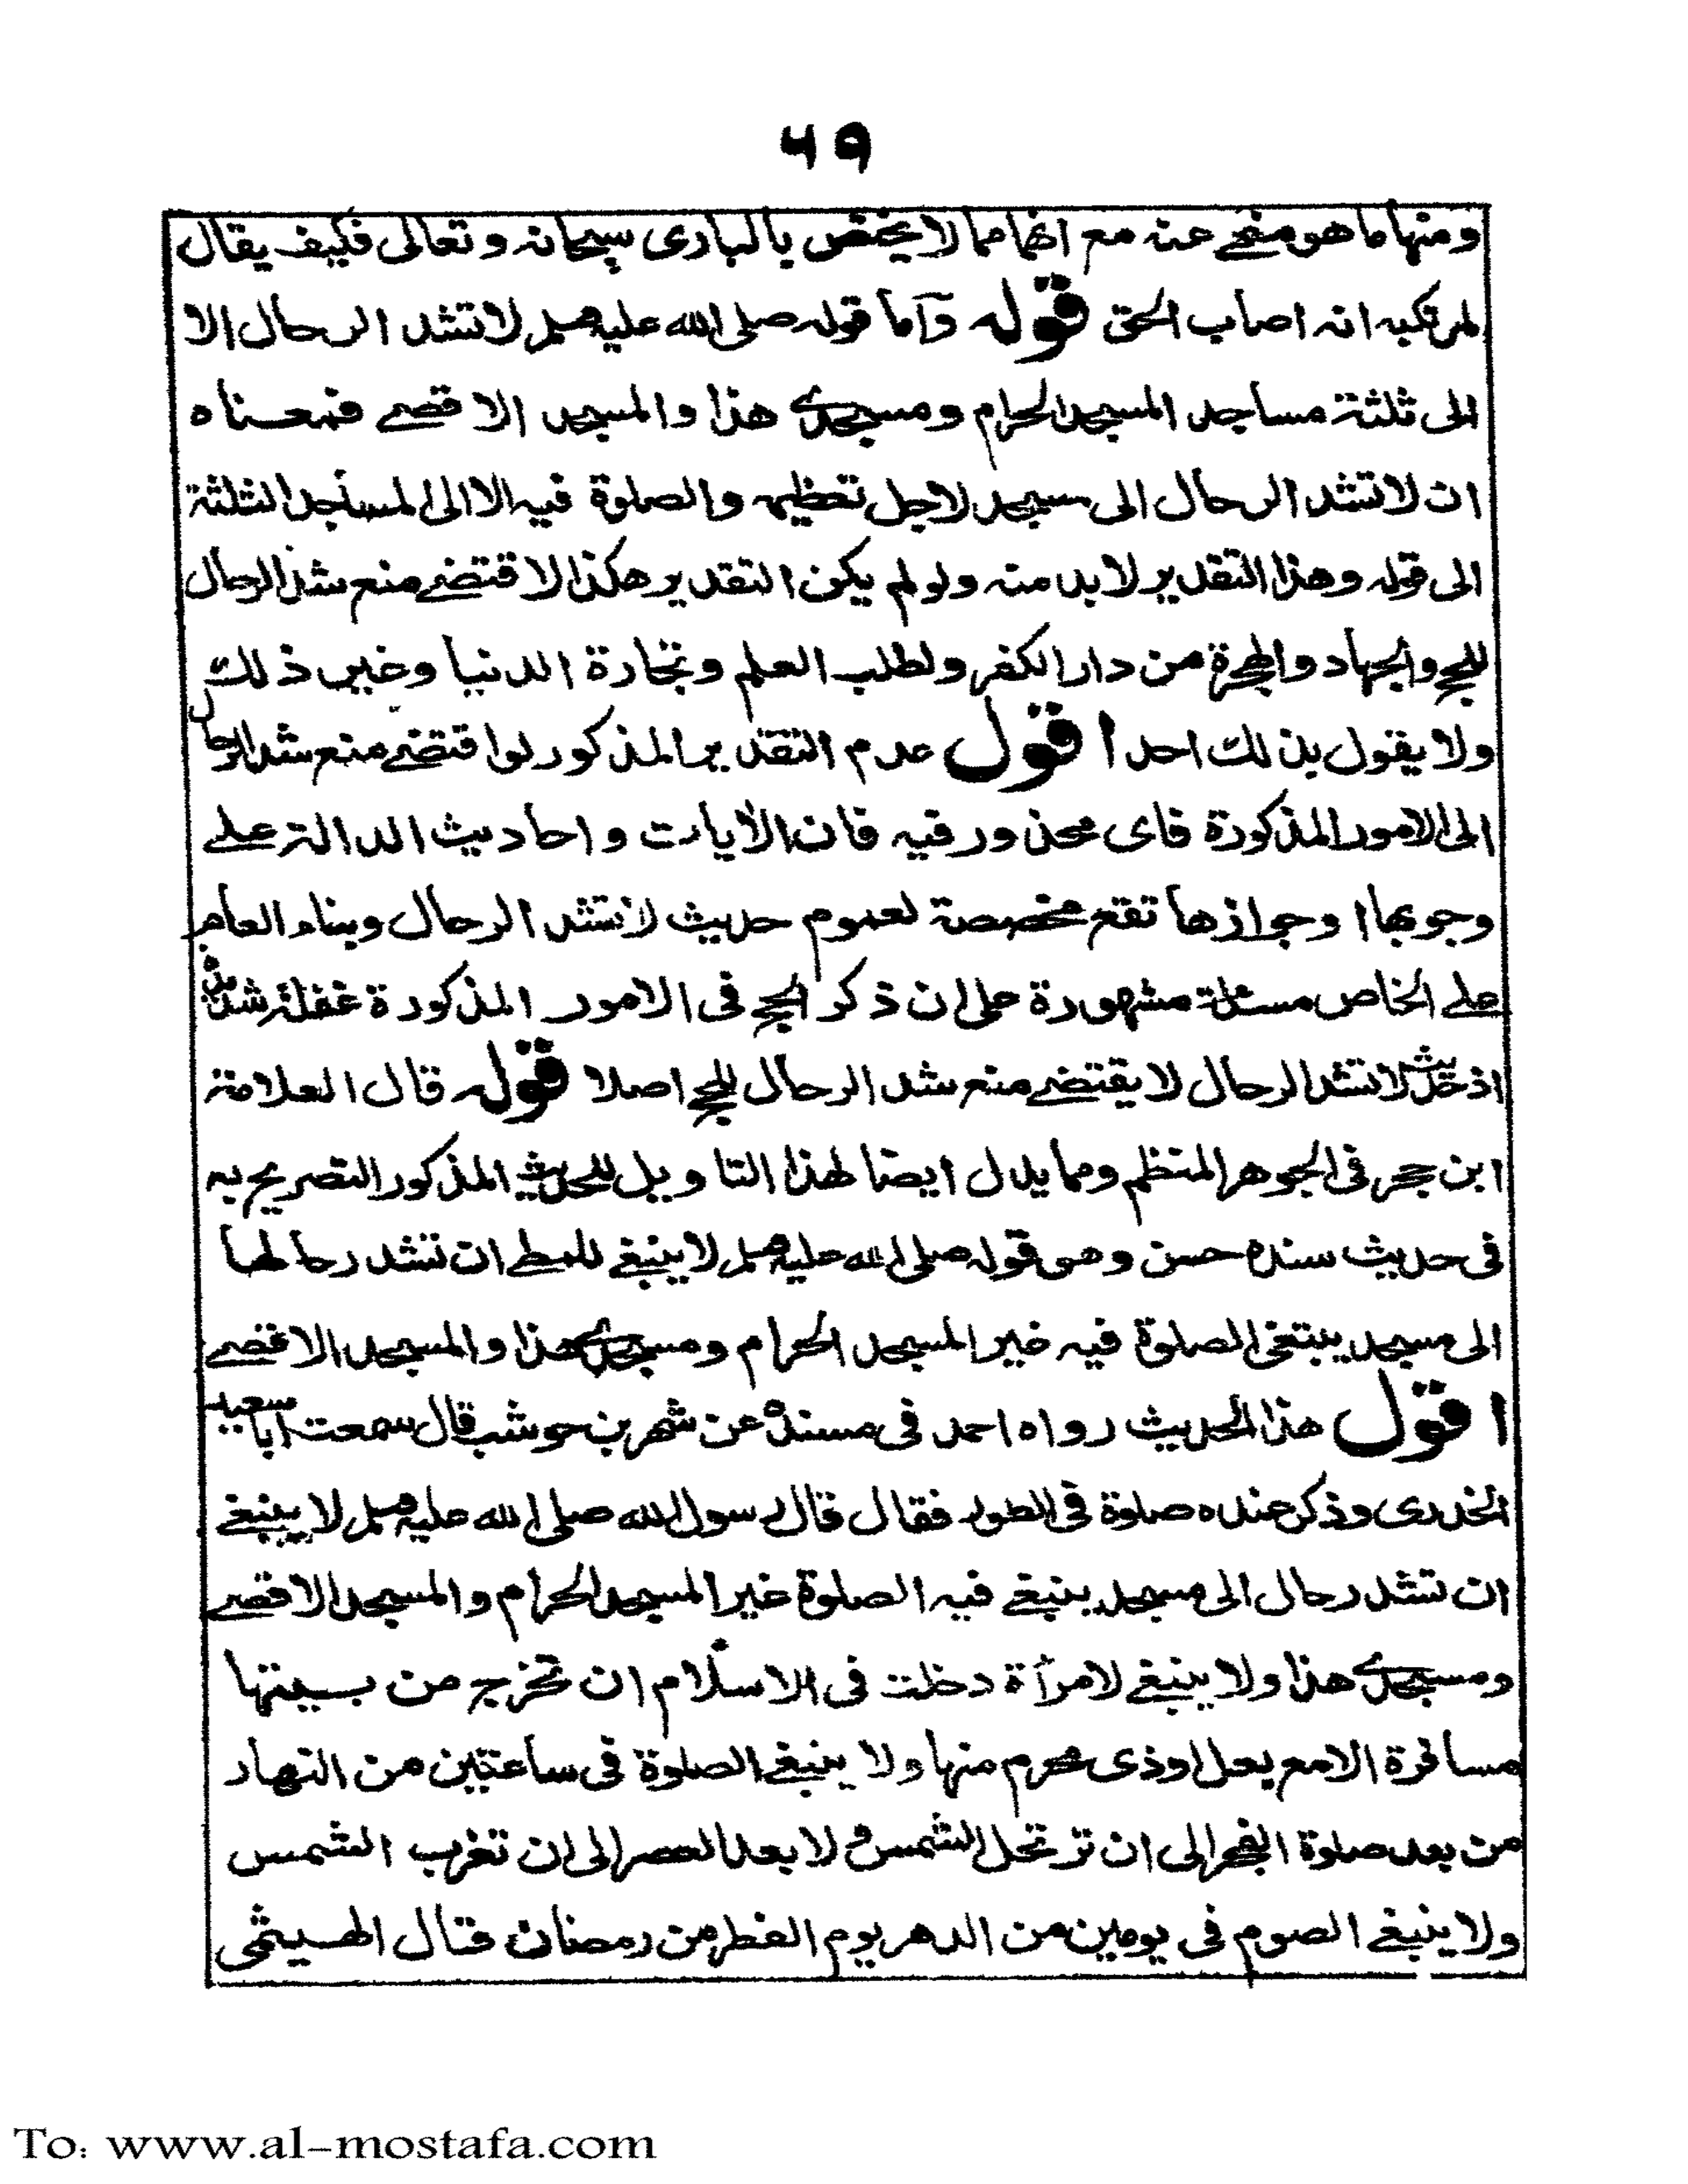 ٤٩
ومنها ما هو منهى عنه مع انها مما لا يختص بالبارى سبحانه وتعالى فكيف يقال
لمرتكبه انه اصاب الحق قوله وآما قوله صلى الله عليه وسلم لا تشد الرحال الا
الى ثلثة مساجد المسجد الحرام ومسجدى هذا والمسجد الاقصى فمعناه
ان لا تشد الرحال الى مسجد لاجل تعظيمه والصلوة فيه الا الى المساجد الثلثة
الى قوله وهذا التقدير لا بد منه ولو لم يكن التقدير هكذا لاقتضى منع شد الرحال
للحج والجهاد والهجرة من دار الكفر ولطلب العلم وتجارة الدنيا وغير ذلك
ولا يقول بذلك احد اقول عدم التقدير المذكور لو اقتضى منع شد الرحال
الى الامور المذكورة فاى محذور فيه فان الأيات واحاديث الدالة على
وجوبها او جوازها تقع مخصصة لعموم حديث لا تشد الرحال وبناء العام
على الخاص مسئلة مشهورة على ان ذكر الحج فى الامور المذكورة غفلة شديدة
اذ حديث لا تشد الرحال لا يقتضى منع شد الرحال للحج اصلا قوله قال العلامة
ابن حجر فى الجوهر المنظم ومما يدل ايضا لهذا التاويل للحديث المذكور التصريح به
فى حديث سنده حسن وهو قوله صلى الله عليه وسلم لا ينبغى للمطى ان تشد رحالها
الى مسجد يبتغى الصلوة فيه غير المسجد الحرام ومسجدى هذا والمسجد الاقصى
اقول هذا الحديث رواه احمد فى مسنده عن شهر بن حوشب قال سمعت ابا سعيد
الخدرى وذكر عنده صلوة فى الطور فقال قال رسول الله صلى الله عليه وسلم لا ينبغى
ان تشد رحال الى مسجد ينبغى فيه الصلوة غير المسجد الحرام والمسجد الاقصى
ومسجدى هذا ولا ينبغى لامرأة دخلت فى الاسلام ان تخرج من بيتها
مسافرة الا مع بعل او ذى محرم منها ولا ينبغى الصلوة فى ساعتين من النهار
من بعد صلوة الفجر الى ان ترتحل الشمس ولا بعد العصر الى ان تغرب الشمس
ولا ينبغى الصوم فى يومين من الدهر يوم الفطر من رمضان قال الهيثمى
To: www.al-mostafa.com